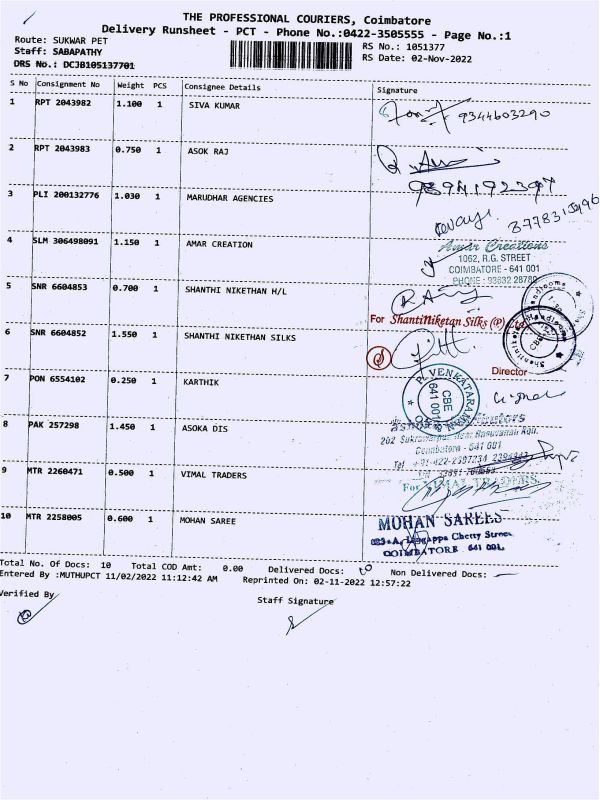 THE PROFESSIONAL COURIERS, Coimbatore
Delivery Runsheet - PCT - Phone No.:0422-3505555 - Page No.:1
Route: SUKWAR PET
RS No.: 1051377
Staff: SABAPATHY
RS Date: 02-Nov-2022
DRS No.: DCJB105137701
S No Consignment No Weight PCS Consignee Details Signature
1 RPT 2043982 1.100 1 SIVA KUMAR 9344603290
2 RPT 2043983 0.750 1 ASOK RAJ
9894192397
3 PLI 200132776 1.030 1 MARUDHAR AGENCIES
4 SLM 306498091 1.150 1 AMAR CREATION
Amar Creations
1062, R.G. STREET
COIMBATORE - 641 001
PHONE : 93632 28789
5 SNR 6604853 0.700 1 SHANTHI NIKETHAN H/L
For ShantiNiketan Silks (P) Ltd
6 SNR 6604852 1.550 1 SHANTHI NIKETHAN SILKS
Director
7 PON 6554102 0.250 1 KARTHIK
P. VENKATARAMAN
CBE
641 001
8 PAK 257298 1.450 1 ASOKA DIS
Coimbatore - 641 001
9 MTR 2260471 0.500 1 VIMAL TRADERS
For VIMAL TRADERS
10 MTR 2258005 0.600 1 MOHAN SAREE
MOHAN SAREES
Chetty Street
COIMBATORE 641 001.
Total No. Of Docs: 10 Total COD Amt: 0.00 Delivered Docs: 10 Non Delivered Docs:
Entered By :MUTHUPCT 11/02/2022 11:12:42 AM Reprinted On: 02-11-2022 12:57:22
Verified By
Staff Signature